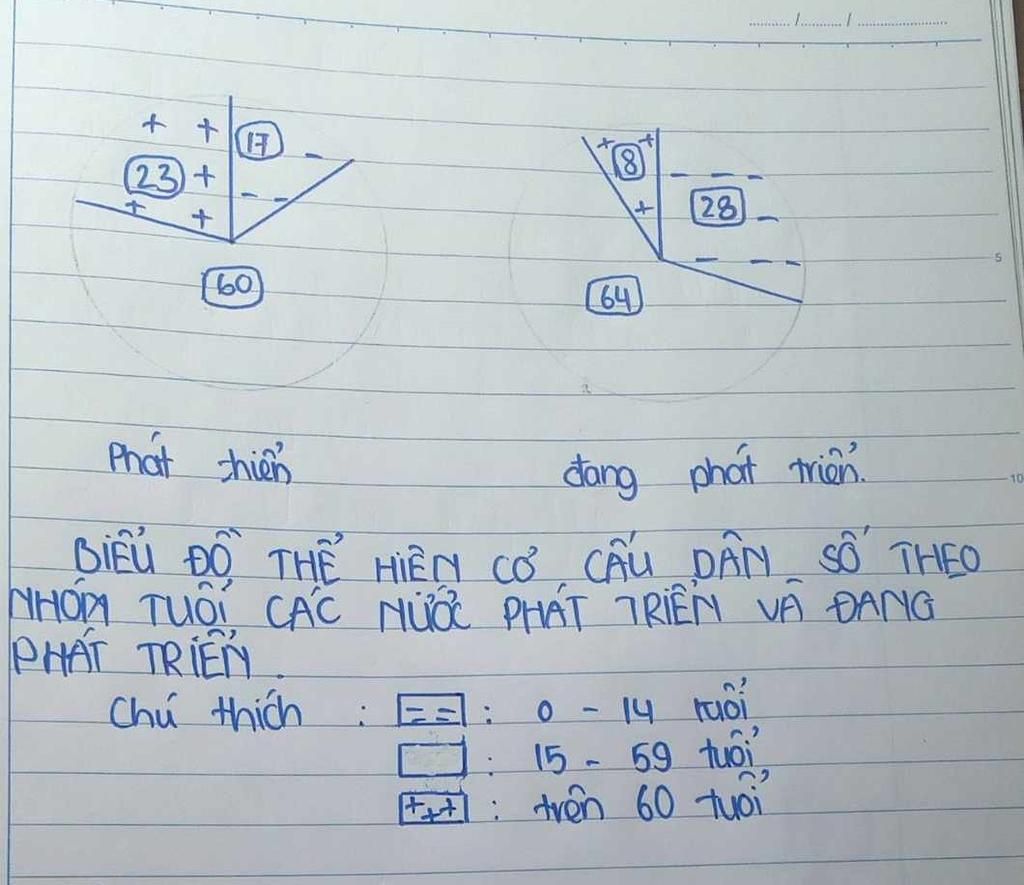 17
23
60
8
28
64
5
Phát thiển đang phát triển.
10
BIỂU ĐỒ THỂ HIỆN CƠ CẤU DÂN SỐ THEO
NHÓM TUỔI CÁC NƯỚC PHÁT TRIỂN VÀ ĐANG
PHÁT TRIỂN.
Chú thích : == : 0 - 14 tuổi
: 15 - 59 tuổi
+++ : trên 60 tuổi